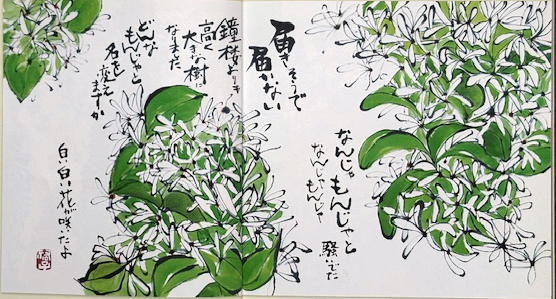 届きそうで
届かない
なんじゃもんじゃと
なんじゃもんじゃ
騒いでた
鐘楼よりも
高く
大きな樹に
なりました
どんな
もんじゃと
名を変え
ますか
白い白い花が咲いたよ